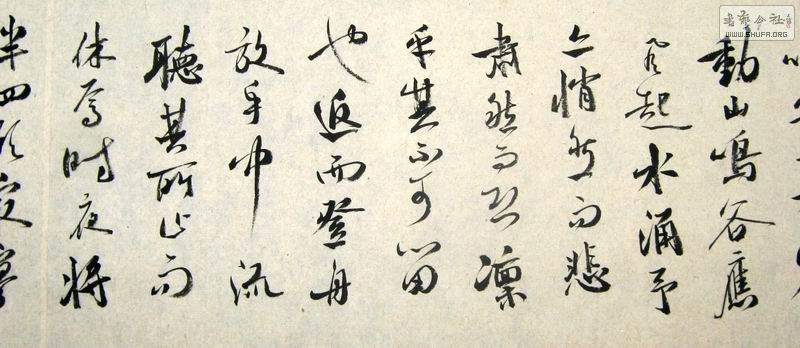 動山鳴谷應
風起水涌予
亦悄然而悲
肅然而恐凜
乎其不可留
也返而登舟
放乎中流
聽其所止而
休焉時夜將
半四顧寂寥
书艺公社
WWW.SHUFA.ORG